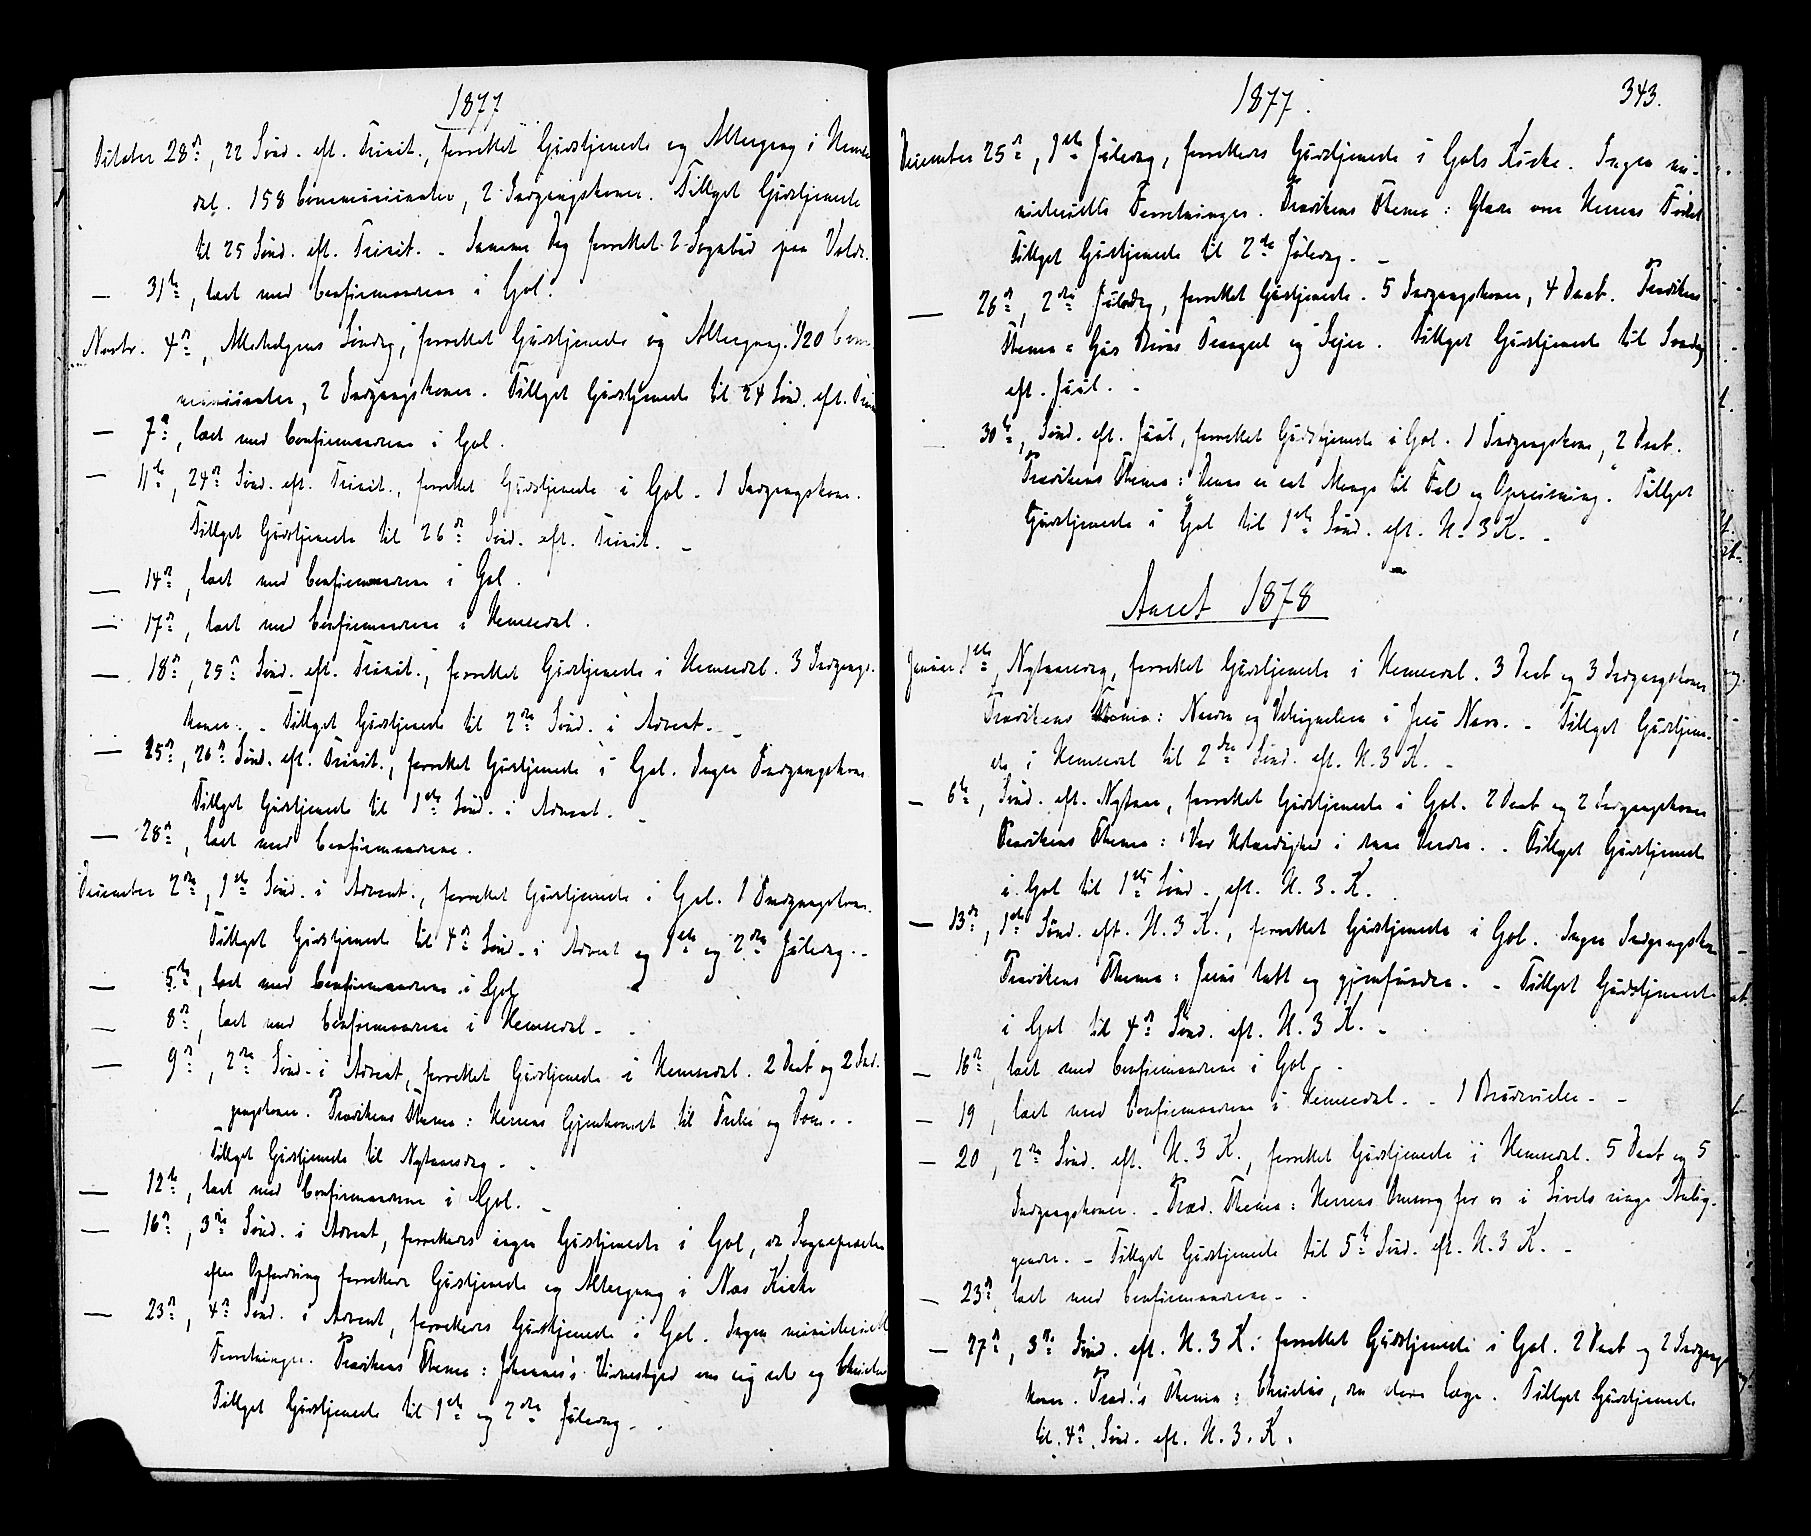 1877
October 28de, 22 Sønd. eft. Trinit., forrettet Gudstjeneste og Altergang i Hemse
dal. 158 Communicanter, 2 Indgangskoner. Tillyst Gudstjeneste
til 25 Sønd. eft. Trinit. - Samme Dag forrettet
31te, læst med Confirmanderne i Gol.
Novbr. 4de, Allehelgens Søndag, forrettet Gudstjeneste og Altergang. 120 Com
municanter, 2 Indgangskoner. Tillyst Gudstjeneste til 24 Sønd. eft. Trin
— 7de, læst med Confirmanderne i Gol.
— 11te, 24de Sønd. eft. Trinit., forrettet Gudstjeneste i Gol. 1 Indgangskone.
Tillyst Gudstjeneste til 26de Sønd. eft. Trinit. -
— 14de, læst med Confirmanderne i Gol.
— 17de, læst med Confirmanderne i Hemsedal.
— 18de, 25de Sønd. eft. Trinit., forrettet Gudstjeneste i Hemsedal. 3 Indgangs-
koner. - Tillyst Gudstjeneste til 2den Sønd. i Advent. -
— 25de, 26de Sønd. eft. Trinit., forrettet Gudstjeneste i Gol. Ingen Indgangskone
Tillyst Gudstjeneste til 1ste Sønd. i Advent. -
— 28de, læst med Confirmanderne.
December 2den, 1ste Sønd. i Advent, forrettet Gudstjeneste i Gol. 1 Indgangskone.
Tillyst Gudstjeneste til 4de Sønd. i Advent og 1ste og 2den Juledag. -
— 5te, læst med Confirmanderne i Gol
— 8de, læst med Confirmanderne i Hemsedal. -
— 9de, 2den Sønd. i Advent, forrettet Gudstjeneste i Hemsedal. 2 Daab og 2 Ind-
gangskoner. Prædikens Thema: Herrens Gjenkomst til Frelse og Dom. -
Tillyst Gudstjeneste til Nytaarsdag. -
— 12te, læst med Confirmanderne i Gol. -
— 16de, 3die Sønd. i Advent, forrettedes ingen Gudstjeneste i Gol, da Sognepræsten
efter Opfordring forrettede Gudstjeneste og Altergang i Næs Kirke
— 23de, 4de Sønd. i Advent, forrettedes Gudstjeneste i Gol. Ingen ministerielle
Forretninger. Prædikens Thema: Johannes's Vidnesbyrd om sig selv og Christus
Tillyst Gudstjeneste til 1ste og 2den Juledag. -
1877.
343.
December 25de, 1ste Juledag, forrettedes Gudstjeneste i Gols Kirke. Ingen mi-
nisterielle Forretninger. Prædikens Thema: Glæde over Herrens Fødsel
Tillyst Gudstjeneste til 2den Juledag. -
— 26de, 2den Juledag, forrettet Gudstjeneste. 5 Indgangskoner, 4 Daab. Prædikens
Thema: Guds Riges Trængsel og Sejer. Tillyst Gudstjeneste til Søndag
eft. Juul. -
30te, Sønd. eft. Juul, forrettet Gudstjeneste i Gol. 1 Indgangskone, 2 Daab.
Prædikens Thema: Denne er sat Mange til Fald og Opreisning. Tillyst
Gudstjeneste i Gol til 1ste Sønd. eft. H. 3 K. -
Aaret 1878
Januar 1ste, Nytaarsdag, forrettet Gudstjeneste i Hemsedal. 3 Daab og 3 Indgangskoner
Prædikens Thema: Naaden og Velsignelsen i Jesu Navn. - Tillyst Gudstjene-
ste i Hemsedal til 2den Sønd. eft. H. 3 K. -
— 6te, Sønd. eft. Nytaar, forrettet Gudstjeneste i Gol. 2 Daab og 2 Indgangskoner
Prædikens Thema: Vor Udlændighed i denne Verden. - Tillyst Gudstjeneste
i Gol til 1ste Sønd. eft. H. 3. K.
— 13de, 1ste Sønd. eft. H. 3 K., forrettet Gudstjeneste i Gol. Ingen Indgangsko
Prædikens Thema: Jesus tabt og gjenfunden. - Tillyst Gudstjenest
i Gol til 4de Sønd. eft. H. 3 K. -
— 16de, læst med Confirmanderne i Gol. -
— 19, læst med Confirmanderne i Hemsedal. - 1 Brudevielse. -
— 20, 2den Sønd. eft. H. 3 K., forrettet Gudstjeneste i Hemsedal. 5 Daab og 5
Indgangskoner. - Præd. Thema: Herrens Omsorg for os i Livets ringe Anlig-
gender. - Tillyst Gudstjeneste til 5te Sønd. eft. H. 3 K. -
— 23de, læst med Confirmanderne. -
— 27de, 3die Sønd. eft. H. 3 K. forrettet Gudstjeneste i Gol. 2 Daab og 2 Indgangs
koner. Præd.s Thema: Christus, den store Læge. Tillyst Gudstjeneste
til 4de Sønd. eft. H. 3. K.